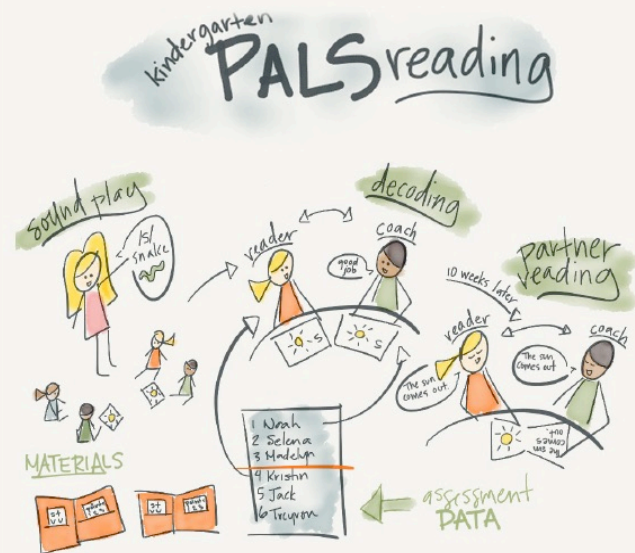 kindergarten
PALS reading
sound play
/s/
snake
decoding
reader
coach
good
job
S
S
partner
reading
10 weeks later
reader
coach
The sun
comes out.
The sun
comes out
The sun
comes
out.
1 Noah
2 Selena
3 Madelyn
4 Kristin
5 Jack
6 Treyvon
MATERIALS
assessment
DATA